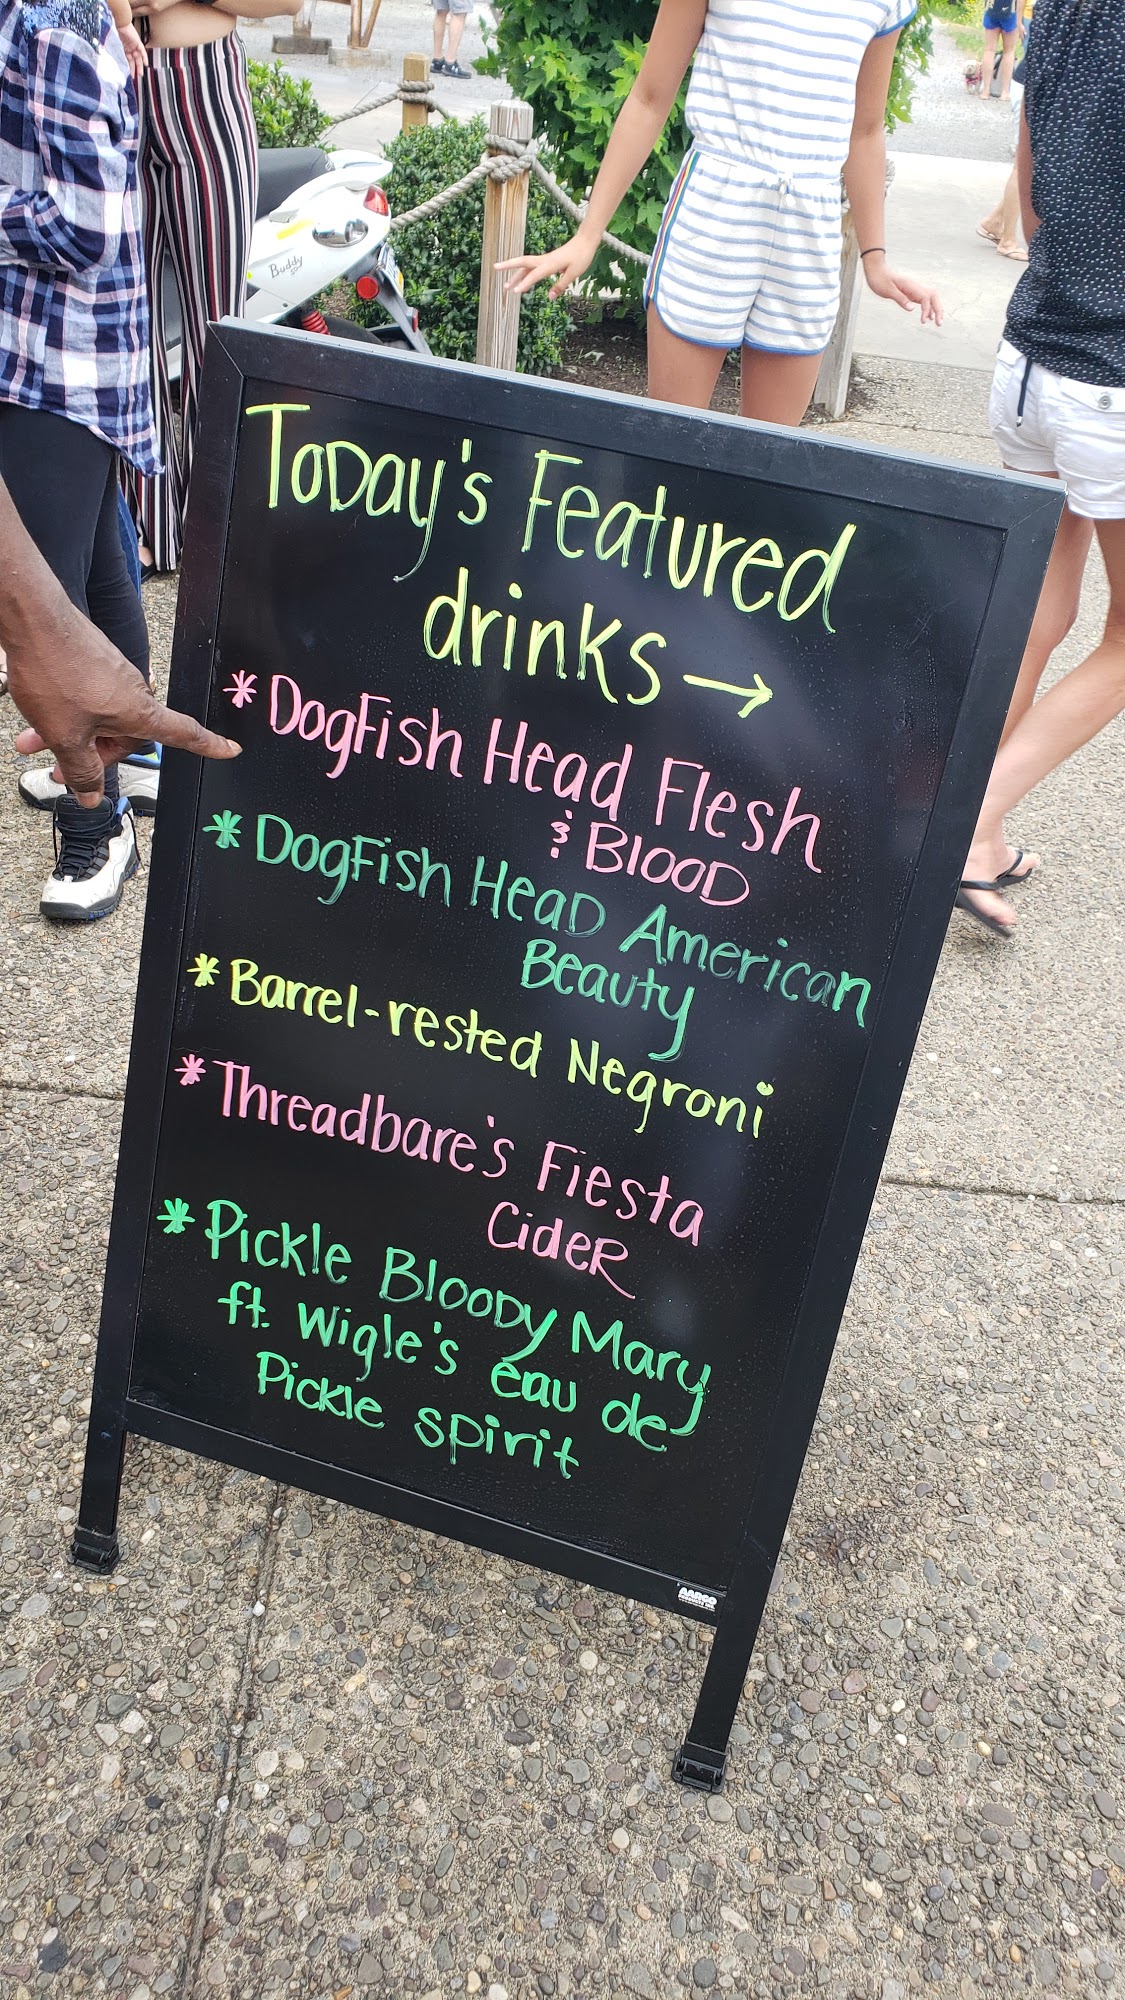 Today's Featured
drinks →
* Dogfish Head Flesh
& Blood
* Dogfish Head American
Beauty
* Barrel-rested Negroni
* Threadbare's Fiesta
Cider
* Pickle Bloody Mary
ft. Wigle's eau de
Pickle spirit
AARCO
Buddy